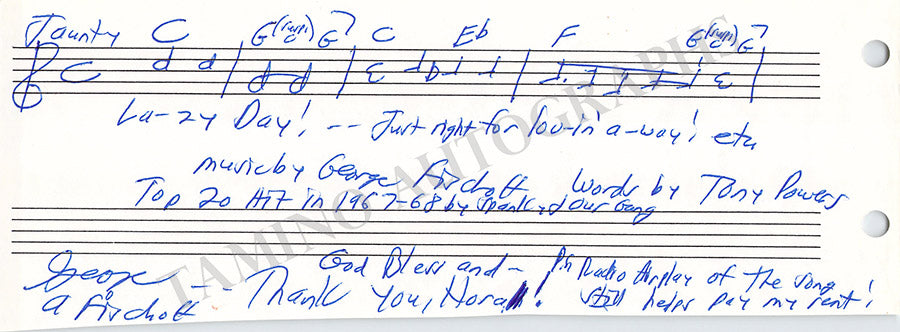 Jaunty C G (sus) C G7 C Eb F G (sus) C G7
C
La-zy Day! -- Just right for lov-in' a-way! etc
music by George Fischoff Words by Tony Powers
Top 20 Hit in 1967-68 by Spanky & Our Gang
God Bless and - P.S. Radio Airplay of the song
George -- Thank you, Nora! still helps pay my rent!
A Fischoff
TAMINO AUTOGRAPHS